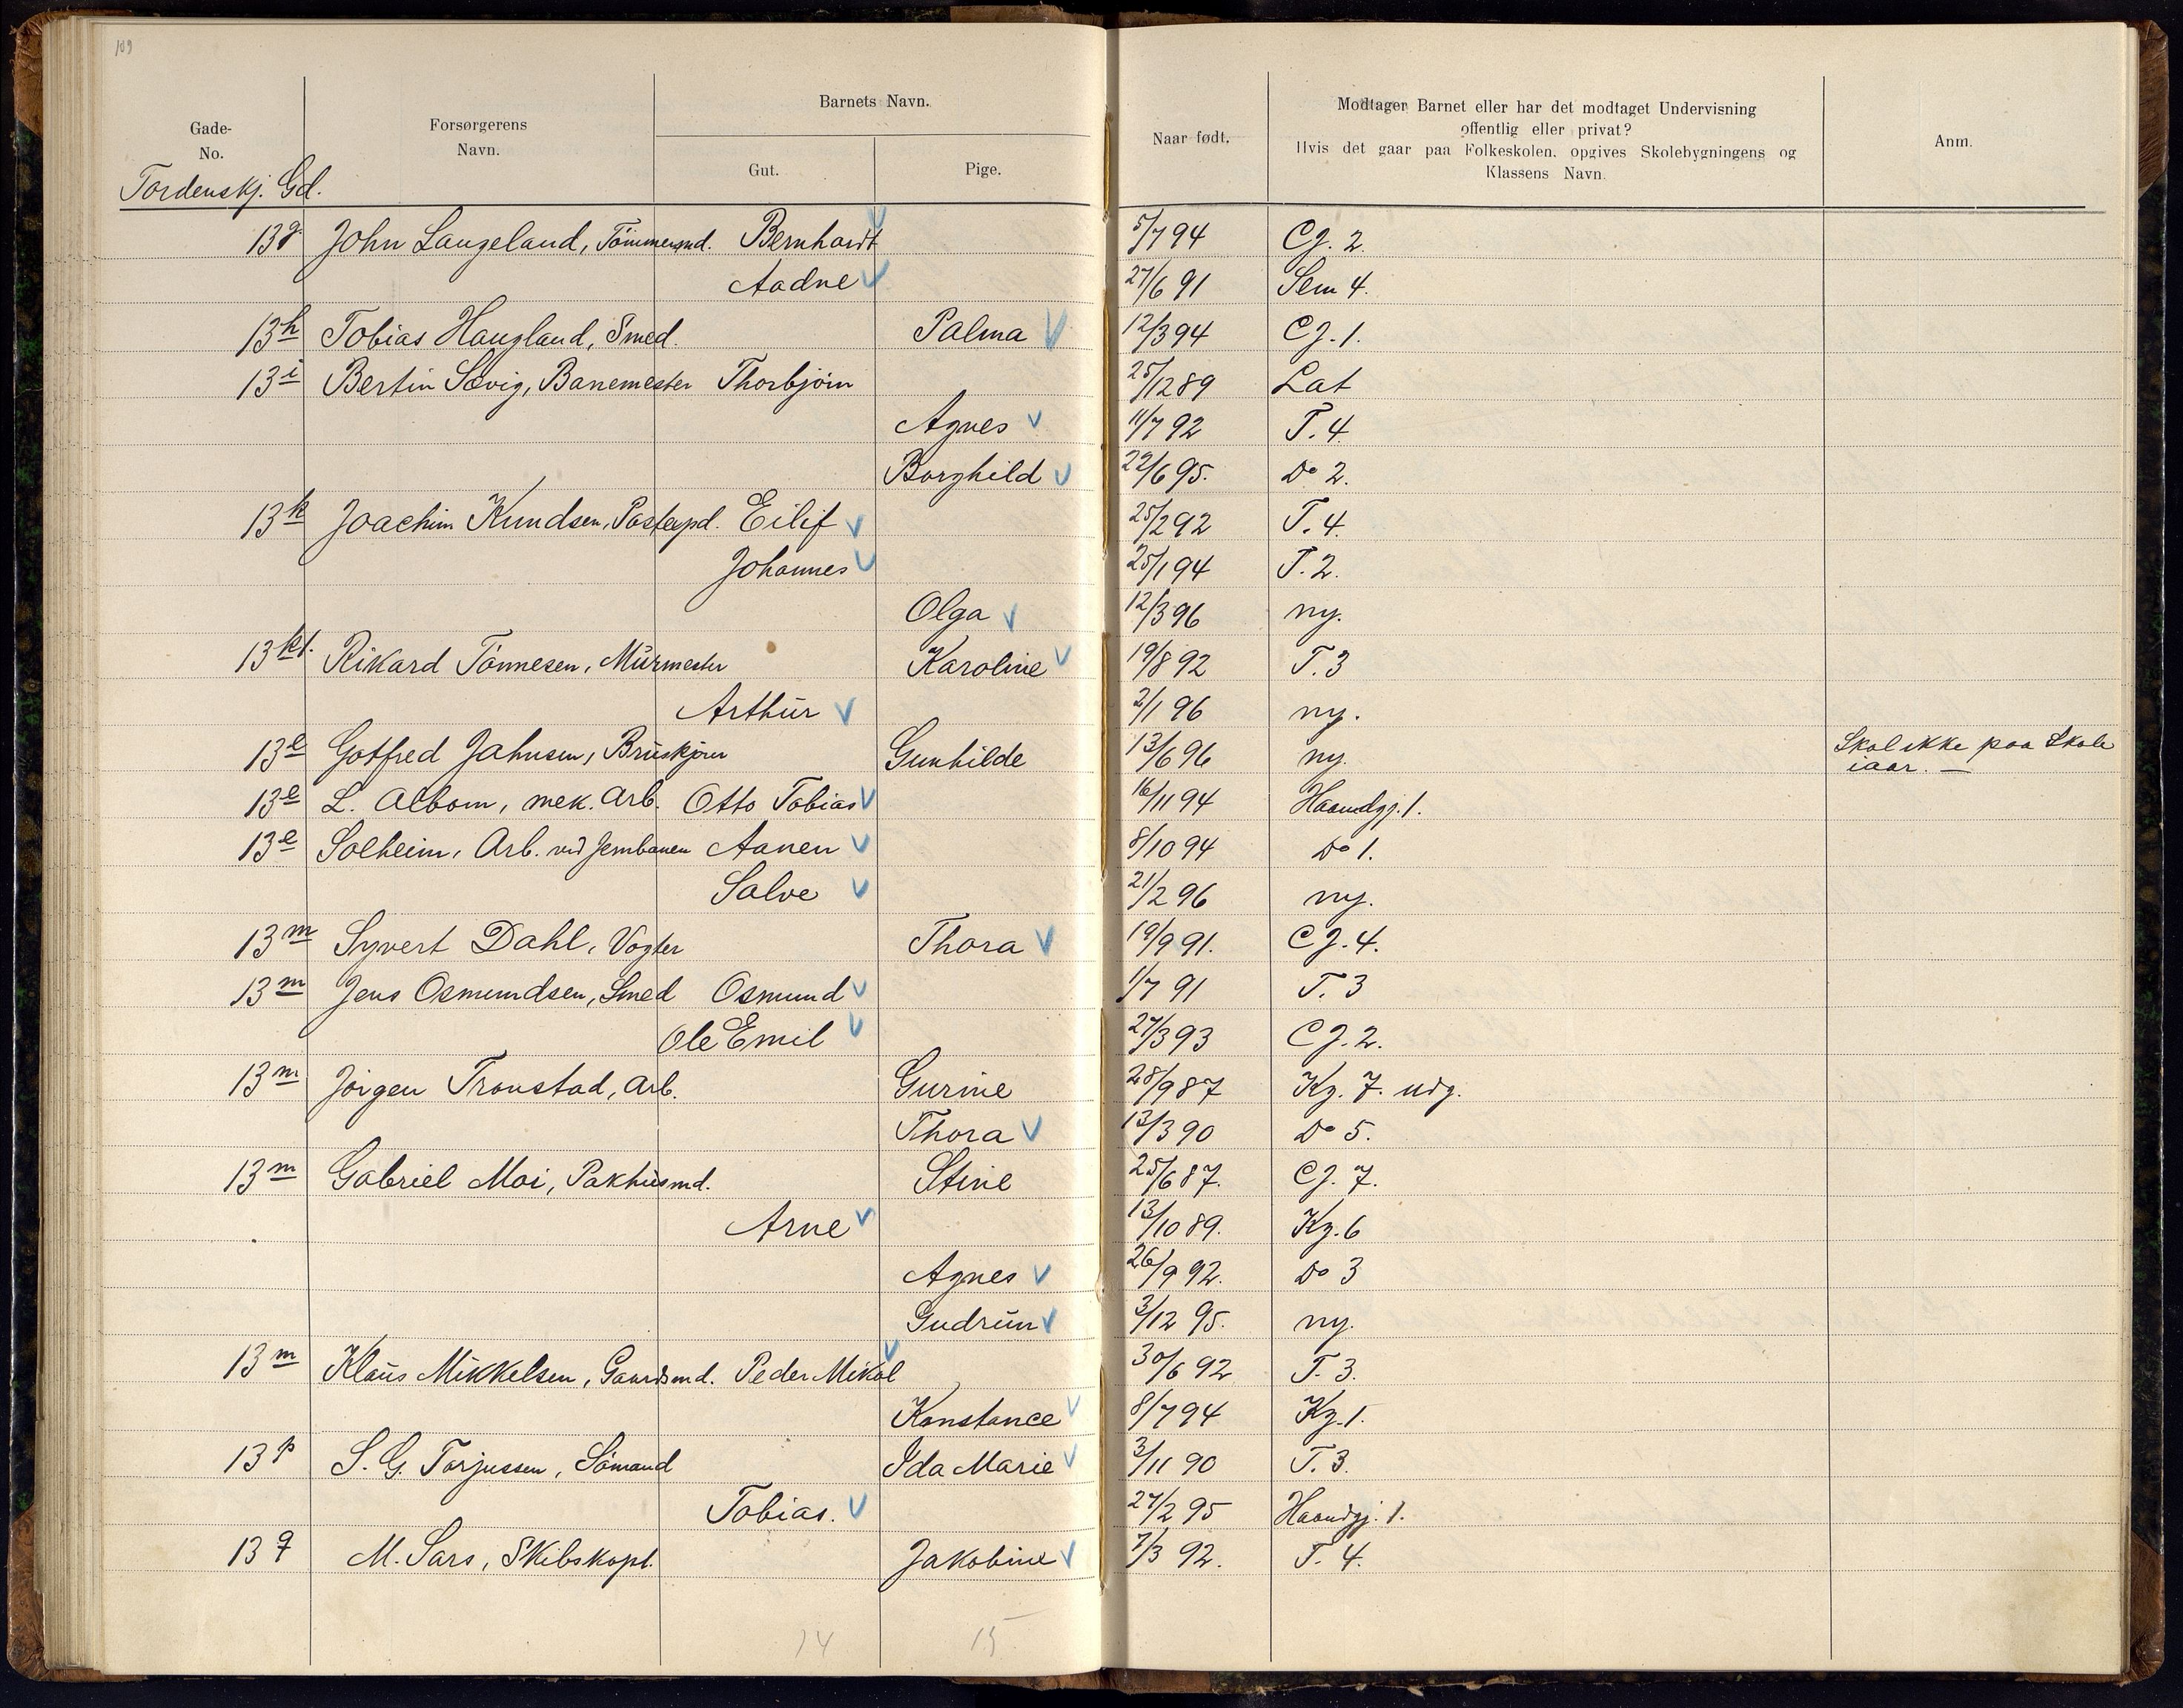 109
Gade-
No.
Forsørgerens
Navn.
Barnets Navn.
Gut.
Pige.
Naar født.
Modtager Barnet eller har det modtaget Undervisning
offentlig eller privat?
Hvis det gaar paa Folkeskolen, opgives Skolebygningens og
Klassens Navn.
Anm.
Tordenskj. Gd.
13g John Langeland, Tömmermd. Bernhardt 5/7 94 CJ. 2.
Aadne 27/6 91 Sem 4.
13h Tobias Haugland, Smed. Palma 12/3 94 CJ. 1.
13i Bertin Sævig, Banemester Thorbjörn 25/12 89 Lat
Agnes 11/7 92 T. 4.
Borghild 22/6 95. Do 2.
13k Joachim Knudsen, Postexpd. Eilif 25/2 92 T. 4.
Johannes 25/1 94 T. 2.
Olga 12/3 96 ny.
13k1. Rikard Tönnesen, Murmester Karoline 19/8 92 T. 3
Arthur 2/1 96 ny.
13l Gotfred Jahnsen, Bruskjörer Gunhilde 13/6 96 ny. Skal ikke paa Skole
iaar. —
13l L. Albom, mek. Arb. Otto Tobias 16/11 94 Haandgj. 1.
13l Solheim, Arb. ved Jernbanen Aanen 8/10 94 Do 1.
Salve 21/2 96 ny.
13m Syvert Dahl, Vogter Thora 19/9 91. CJ. 4.
13m Jens Osmundsen, Smed Osmund 1/7 91 T. 3
Ole Emil 27/3 93 CJ. 2.
13m Jörgen Tronstad, Arb. Gurine 28/9 87 Kg. 7. udg.
Thora 13/3 90 Do 5.
13m Gabriel Moi, Pakhusmd. Stine 25/6 87. CJ. 7.
Arne 13/10 89. Kg. 6
Agnes 26/9 92. Do 3
Gudrun 3/12 95. ny.
13m Klaus Mikkelsen, Gaardsmd. Peder Mikal 30/6 92 T. 3.
Konstance 8/7 94 Kg. 1.
13p S. G. Torjussen, Sömand Ida Marie 3/11 90 T. 3.
Tobias. 27/2 95 Haandgj. 1.
13q M. Sars, Skibskapt. Jakobine 7/3 92. T. 4.
14 15